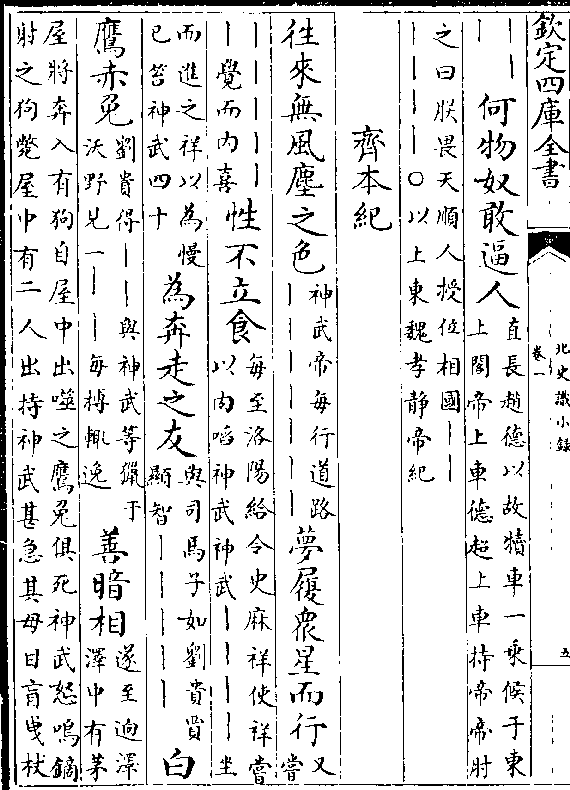 欽定四庫全書
北史識小錄
卷一
五
丨丨
丨
何物奴敢逼人
直長趙德以故犢車一乘候于東
上閤帝上車德超上車持帝帝肘
之曰朕畏天順人授位相國丨丨
丨丨丨丨○以上東魏孝静帝紀
齊本紀
往來無風塵之色
神武帝每行道路
丨丨丨丨丨丨丨
夢履衆星而行
又
嘗
丨丨丨丨丨
丨覺而内喜
性不立食
每至洛陽給令史麻祥使祥嘗
以肉啗神武神武丨丨丨丨坐
而進之祥以為慢
已笞神武四十
為奔走之友
與司馬子如劉貴賈
顯智丨丨丨丨丨
白
鷹赤兔
劉貴得丨丨與神武等獵于
沃野見一丨丨每搏輒逸
善暗相
遂至迥澤
澤中有茅
屋將奔入有狗自屋中出噬之鷹兔俱死神武怒鳴鏑
射之狗斃屋中有二人出持神武甚急其母目盲曳杖